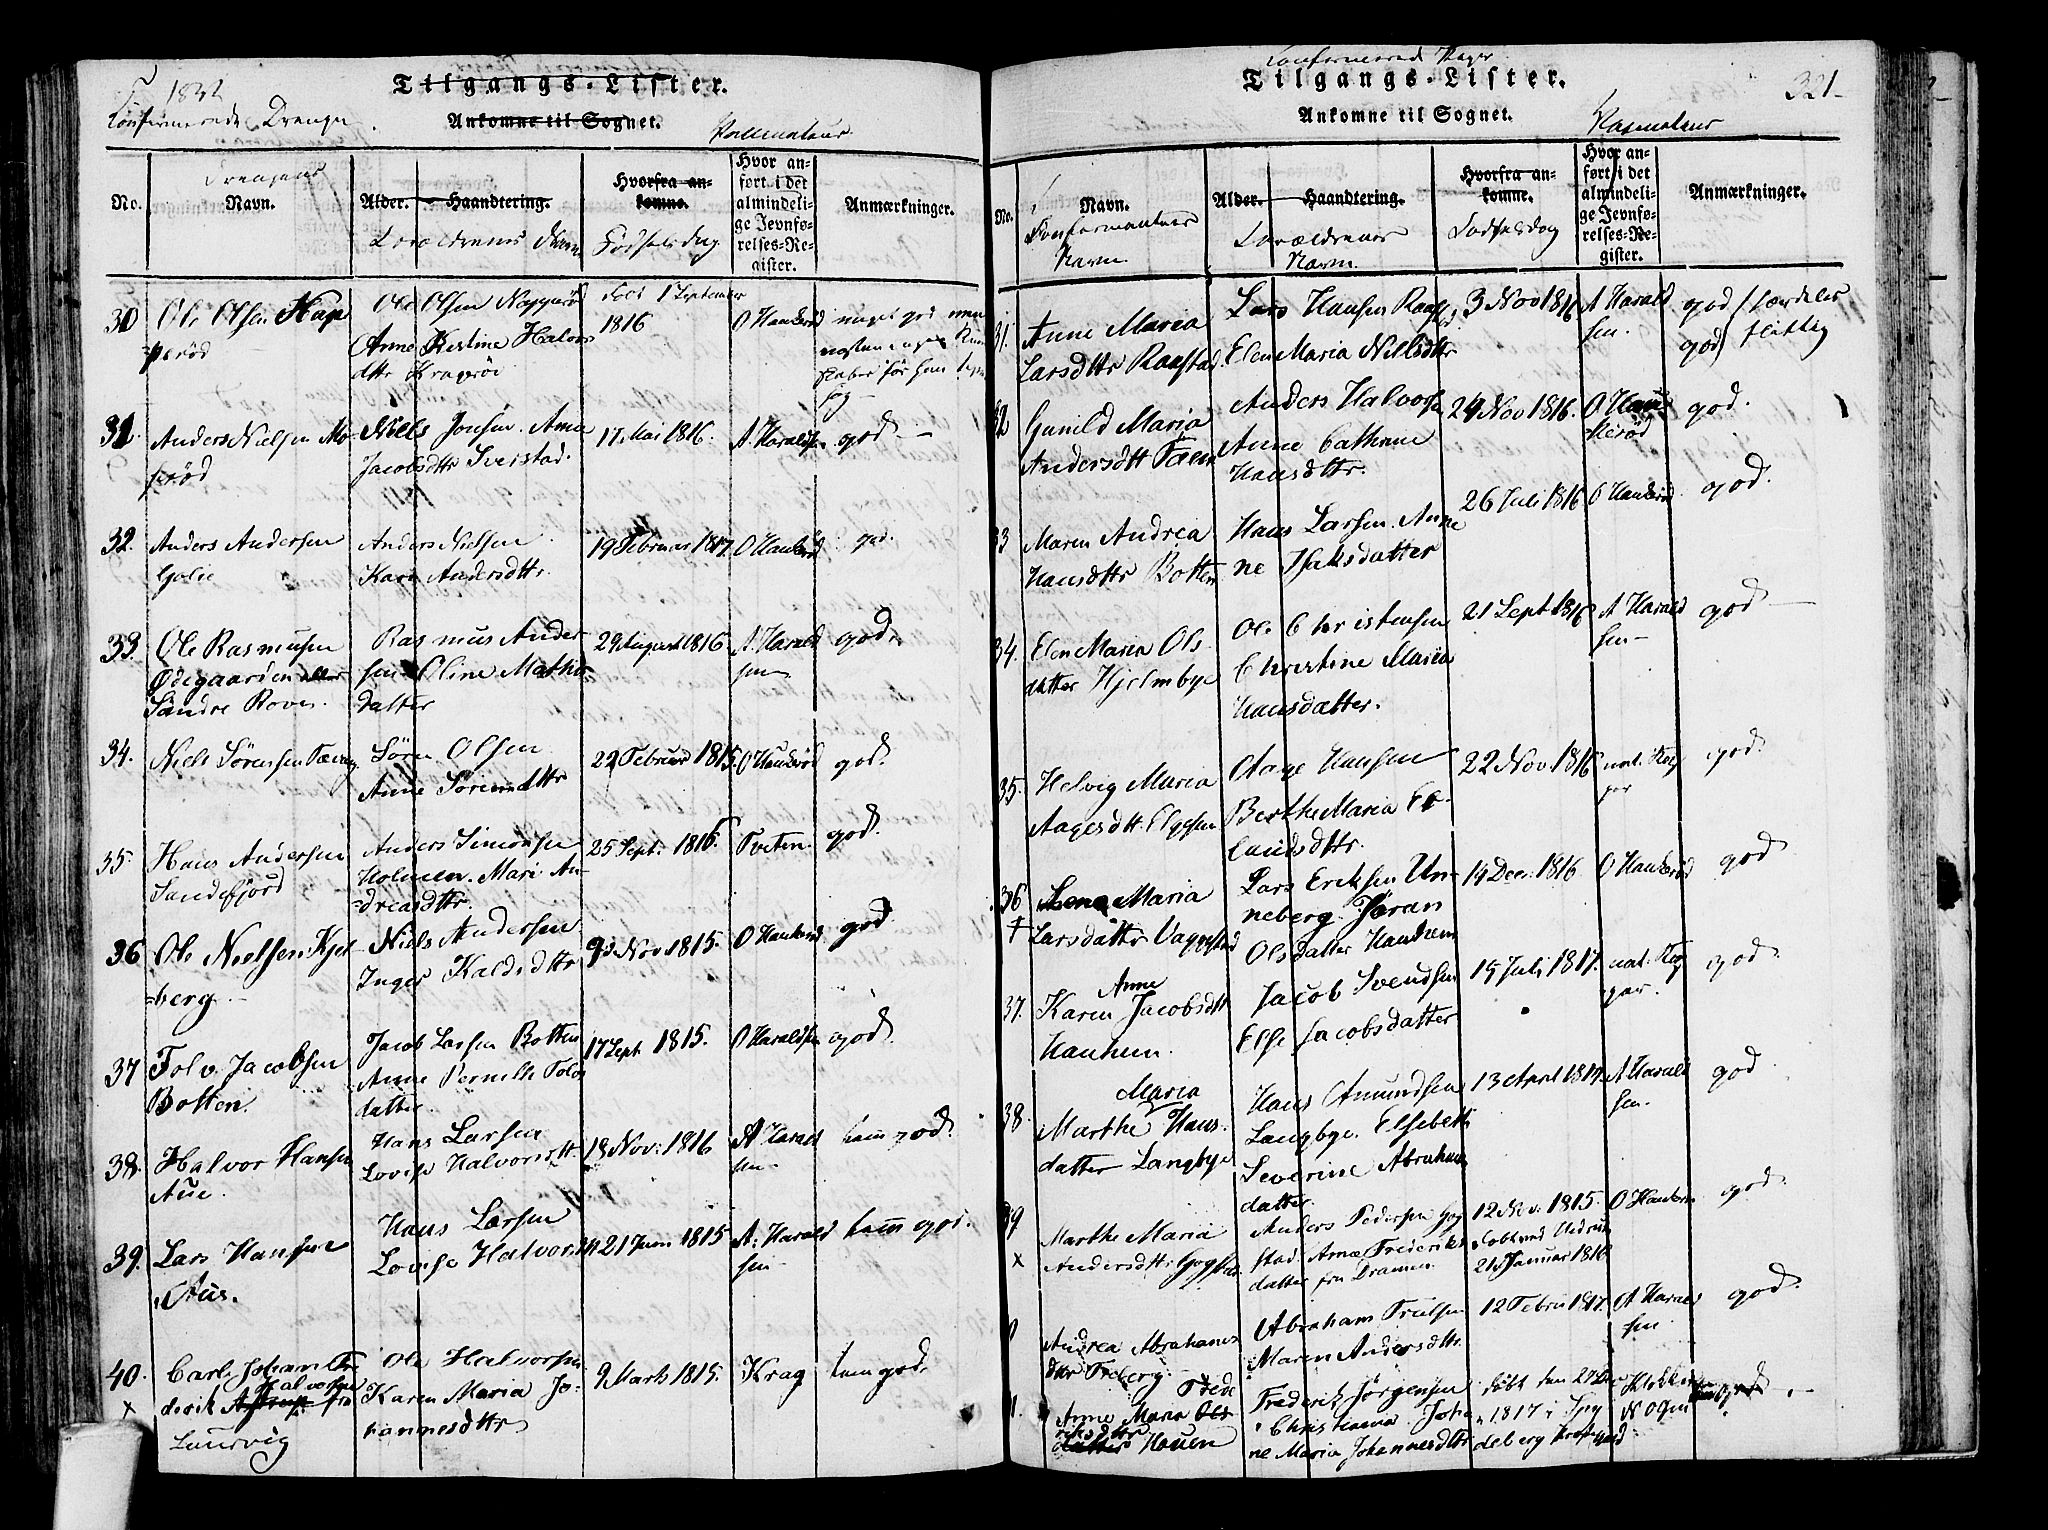 1832
Confirmerede Drenge
Tilgangs-Lister.
Ankomne til Sognet.
No.
Drengens
Navn.
Alder. Haandtering.
Forældrenes Navn
Hvorfra an-
komne.
Fødselsdag
Hvor an-
ført i det
almindeli-
ge Jevnfø-
relses-Re-
gister.
Anmærkninger.
30
Ole Olsen
Ole Olsen
Anne Kirstine Halvors
dttr Kragerøi
født 1 September
1816
O Haukerød
meget god men
31.
Anders Nielsen Mo-
serød
Niels Jensen. Anne
Jacobsdttr Sverstad.
17 Mai 1816.
A. Haraldsen
god
32.
Anders Andersen
Golie
Anders Nielsen
Kari Andersdttr.
19 Februar 1817
O Haukerød
god.
33.
Ole Rasmusen
Ødegaarden eller
Søndre Rove.
Rasmus Ander
sen Oline Mathis
datter
29 August 1816
A. Harald
sen
god.
34.
Niels Sørensen
Sören Olsen
Anne Sörensdttr
22 Februar 1815.
O Haukerød
god.
35.
Hans Andersen
Sandefjord
Anders Simonsen
Holmen. Mari An-
dreasdttr.
25 Sept. 1816.
Tveten
god.
36
Ole Nielsen Kjel
berg.
Niels Andersen
Inger
9de Nov 1815.
O Haukerød
god
37
Tolv. Jacobsen
Botten.
Jacob Larsen Botten
Anne Pernille Tolvs
datter
17 Sept 1815.
O Haraldsen
god
38.
Halvor Hansen
Aue.
Hans Larsen
Lovise Halvorsdttr
18 Nov: 1816
A Harald
sen
tem god.
39.
Lars Hansen
Aue.
Hans Larsen
Lovise Halvorsdttr
21 Juni 1815
A: Harald
sen
tem god.
40.
x
Carl Johan Fre
Halvorsen
derik fra
Laurvig
Ole Halvorsen
Karen Maria Jo-
hannesdttr
9 Marts 1815.
Krag
tem god.
Confirmerede Piger
Tilgangs-Lister.
321
Ankomne til Sognet.
No.
Navn.
Confirmantens
Navn.
Alder. Haandtering.
Forældrenes
Navn.
Hvorfra an-
komne.
Fødselsdag
Hvor an-
ført i det
almindeli-
ge Jevnfø-
relses-Re-
gister.
Anmærkninger.
31.
Anne Maria
Larsdttr Raastad
Lars Hansen Raastad
Elen Maria Nielsdttr
3 Nov 1816
A Harald
sen.
god særdeles
god flittig
32
Gunild Maria
Andersdttr
Anders Halvorsen
Anne Cathrine
Hansdttr.
24 Nov 1816.
O Hau-
kerød
god.
33
Maren Andrea
Hansdttr Botten
Hans Larsen. Anne
ne Isaksdatter
26 Juli 1816
O Haukerød
god.
34.
Elen Maria Ols
datter Hjelmbye
Ole Christensen
Christine Maria
Hansdatter.
21 Sept 1816
A Harald
sen
god
35.
Helvig Maria
Aagesdtt.
Aage Hansen
Berthe Maria Er-
landsdttr.
22 Nov. 1816
god.
36
+
Maria
Larsdatter
Lars Eriksen Un-
neberg. Jøran
Olsdatter
14 Dec. 1816
O Haukerød
god
37.
Anne
Karen Jacobsdtt
Hauhem.
Jacob Svendsen
Else Jacobsdatter
15 Juli 1817.
god.
38.
Maria
Marthe Hans-
datter Langbye
Hans Amundsen
Langbye. Elsebeth
Severine Abraham
datter
13 April 1817.
A Harald
sen.
god
39
x
Marthe Maria
Andersdttr Gogstad
Anders Pedersen Gog
stad. Anne Frederiks
datter fra Dramen.
12 Nov. 1815.
21 Januar 1816
O Haukerød
god.
Andrea Abrahams
dttr Freberg.
Abraham Trulsen
Maren Andersdttr.
12 Febru 1817.
A Harald
sen
god.
Frede
Anne Maria
riksdttr
datter Hauen
Frederik Jørgensen
Christiania. Joha
ne Maria Johannesdttr
født den 27 Dec
1817 i